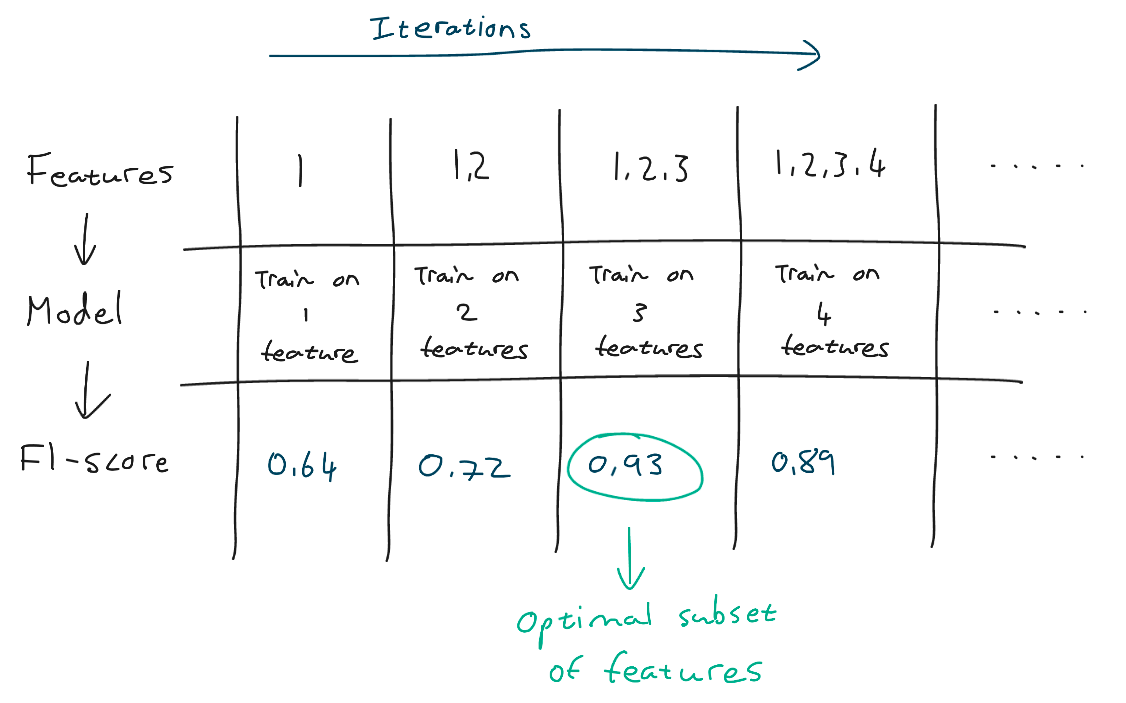 Iterations
Features
1
1,2
1.2.3
1.2.3.4
.....
Model
Train on
1
feature
Train on
2
features
Train on
3
features
Train on
4
features
.....
F1-score
0.64
0.72
0,93
0.89
.....
Optimal subset
of features